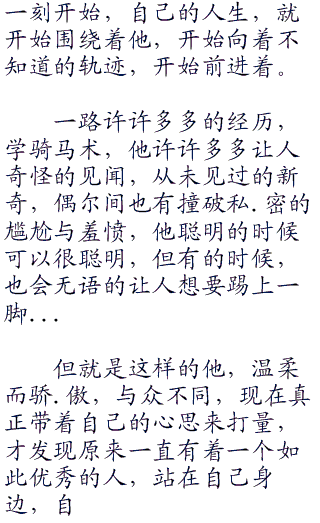 一刻开始，自己的人生，就
开始围绕着他，开始向着不
知道的轨迹，开始前进着。
一路许许多多的经历，
学骑马术，他许许多多让人
奇怪的见闻，从未见过的新
奇，偶尔间也有撞破私.密的
尴尬与羞愤，他聪明的时候
可以很聪明，但有的时候，
也会无语的让人想要踢上一
脚...
但就是这样的他，温柔
而骄.傲，与众不同，现在真
正带着自己的心思来打量，
才发现原来一直有着一个如
此优秀的人，站在自己身
边，自